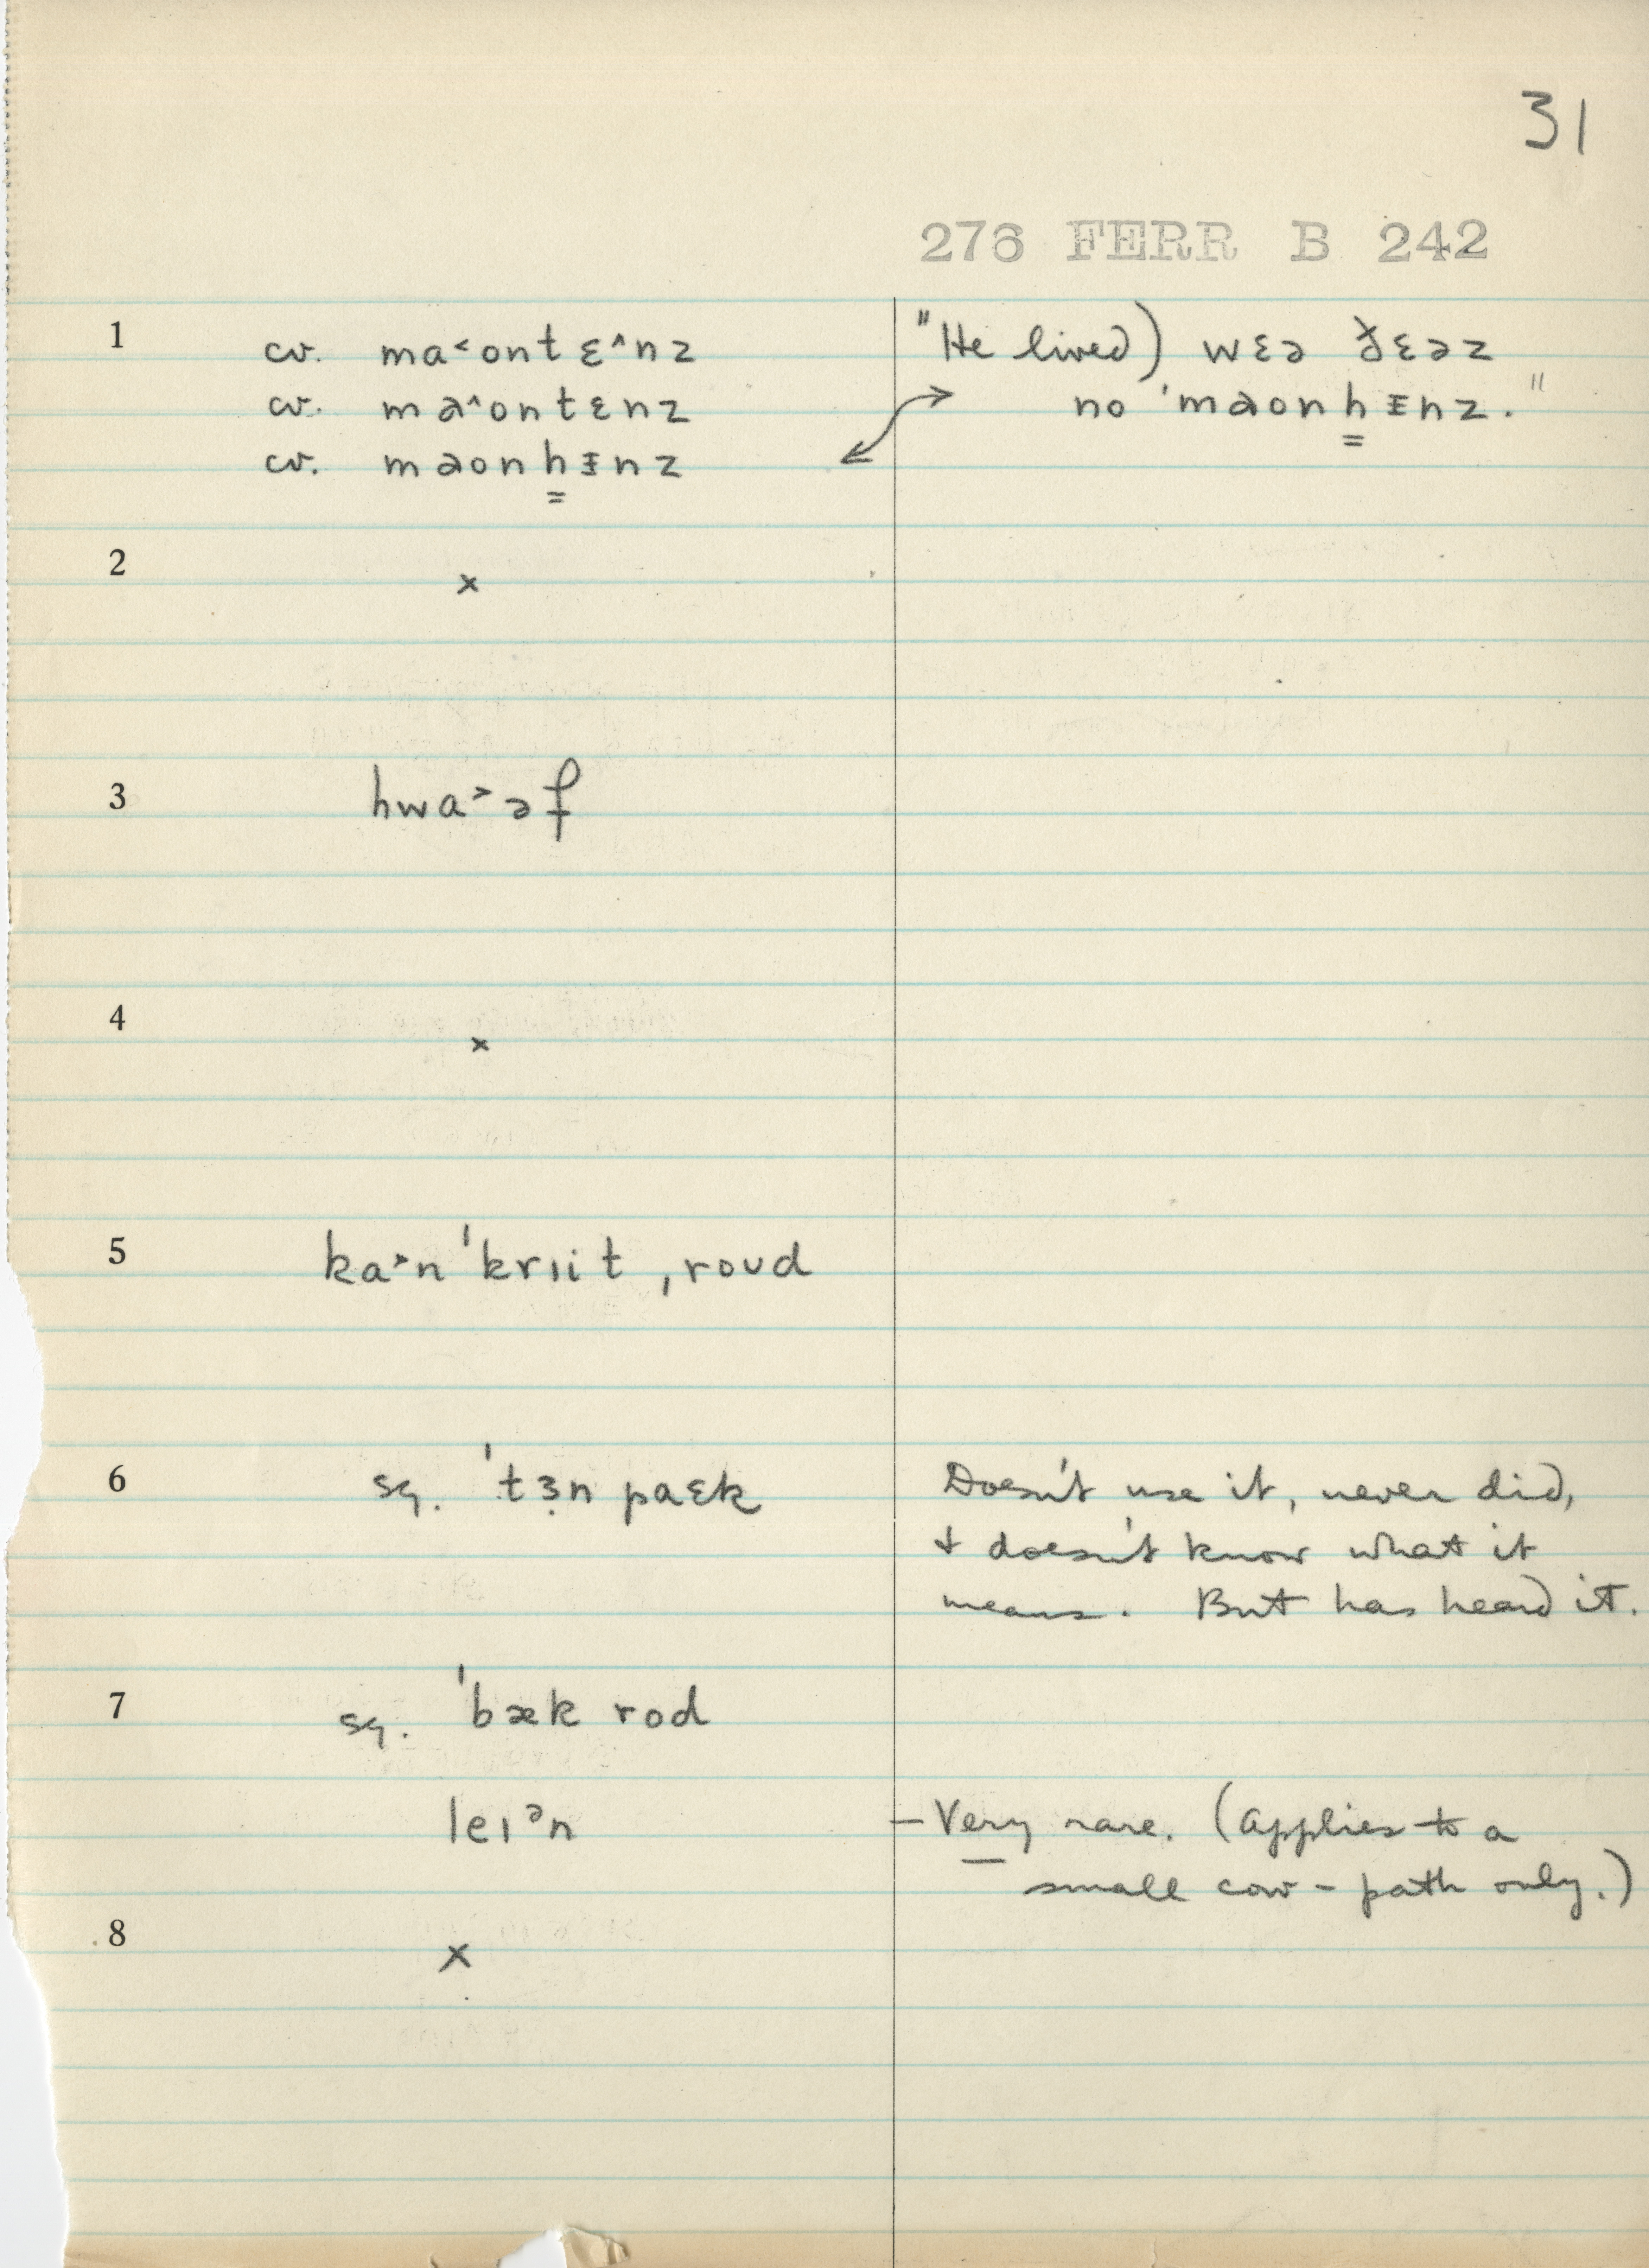 31
276 FERR B 242
1 cv. ma˂ontɛ˄nz "He lived) wɛə ðɛəz
cv. mɑ˄ontɛnz no ˈmɑonhᵻnz."
cv. mɑonhᵻnz
2 x
3 hwa˃əf
4 x
5 ka˃nˈkrɪit ˌroʊd
6 sq. ˈtɜ̣n paɛk Doesn't use it, never did,
& doesn't know what it
means. But has heard it.
7 sq. ˈbæk rod
leɪᵊn – Very rare. (Applies to a
small cow-path only.)
8 x